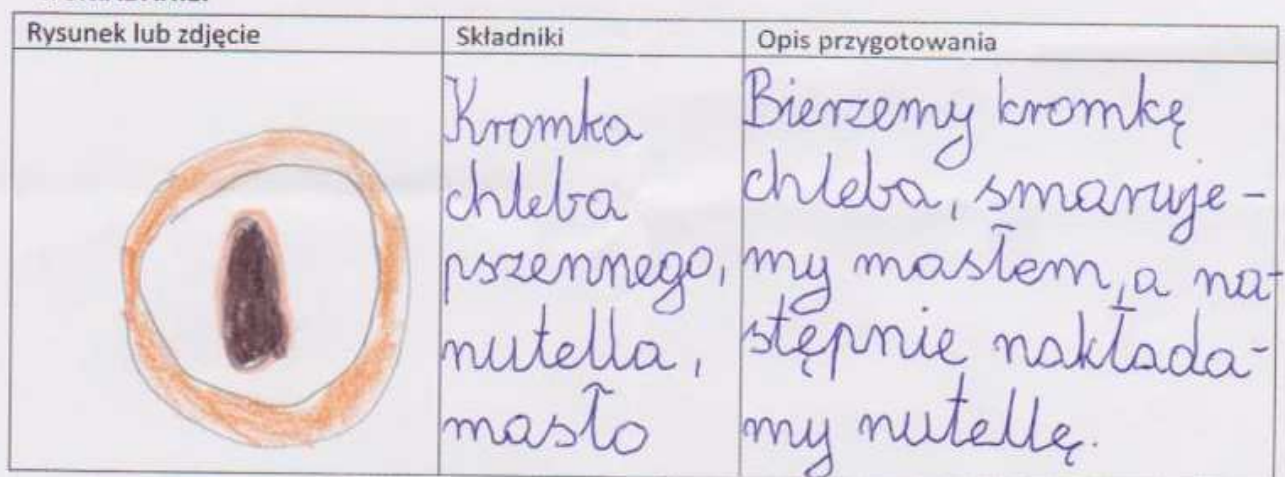 Rysunek lub zdjęcie
Składniki
Opis przygotowania
Kromka
chleba
pszennego,
nutella,
masło
Bierzemy kromkę
chleba, smaruje-
my masłem, a na-
stępnie nakłada-
my nutellę.